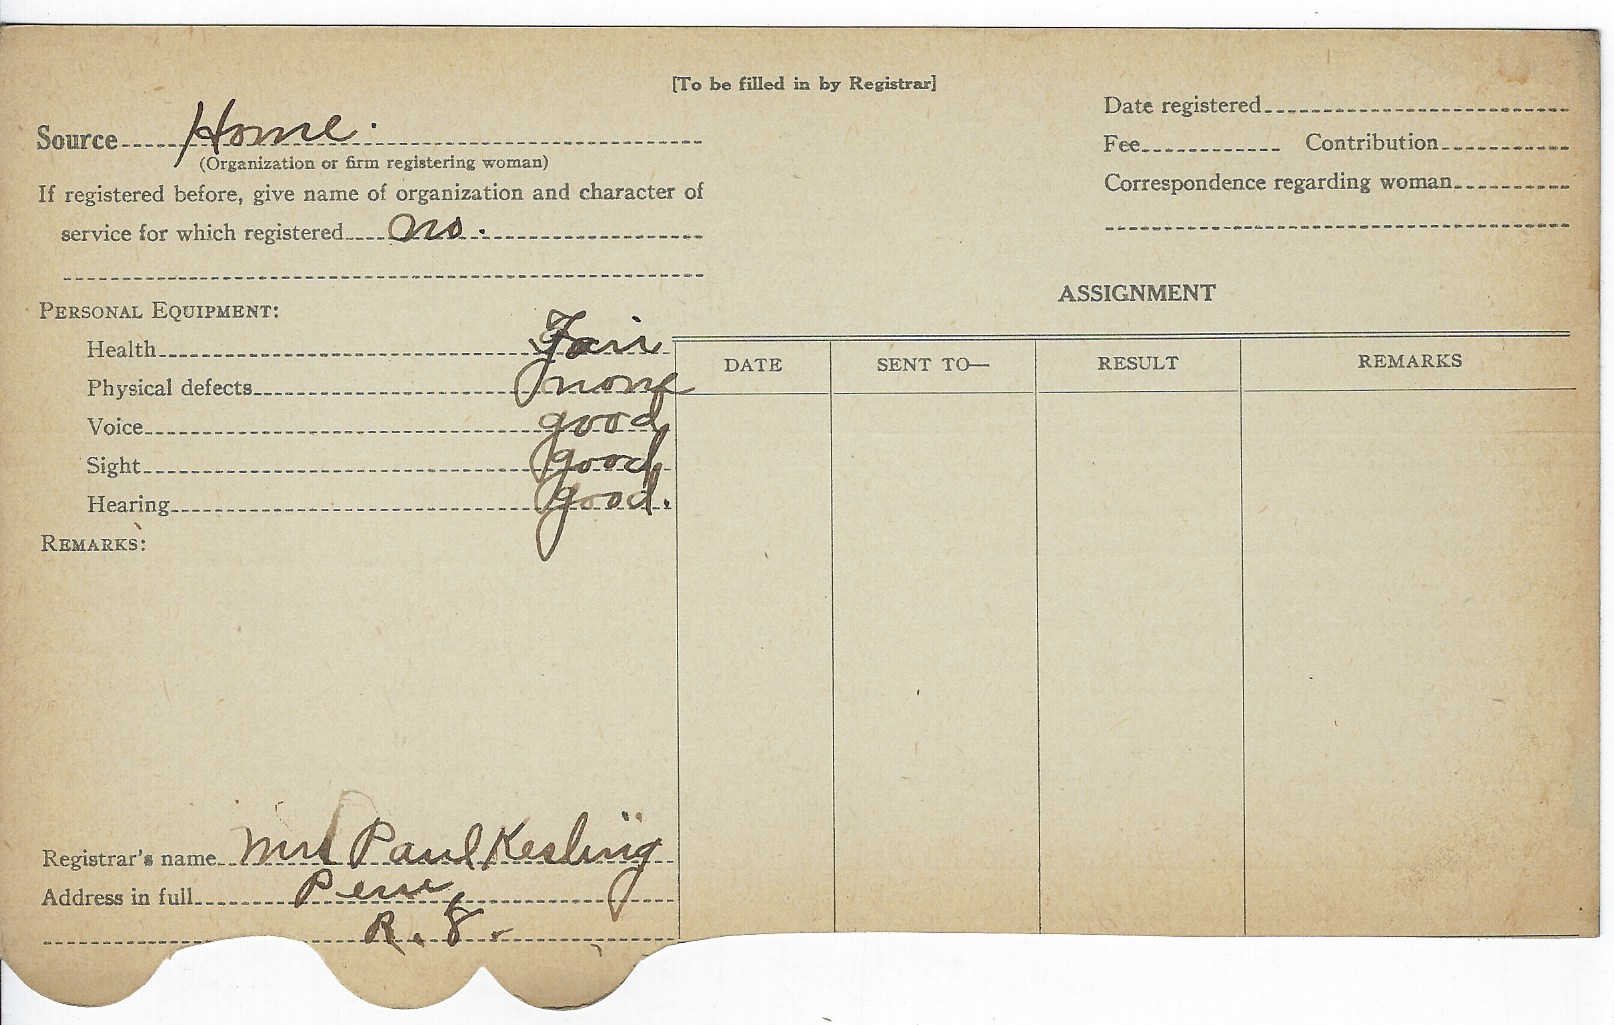 [To be filled in by Registrar]
Source Home.
(Organization or firm registering woman)
If registered before, give name of organization and character of
service for which registered no.
Date registered
Fee Contribution
Correspondence regarding woman
PERSONAL EQUIPMENT:
Health Fair
Physical defects none
Voice good
Sight good
Hearing good.
REMARKS:
Registrar's name Mrs Paul Kesling
Address in full Peru
R. 8.
ASSIGNMENT
DATE SENT TO— RESULT REMARKS